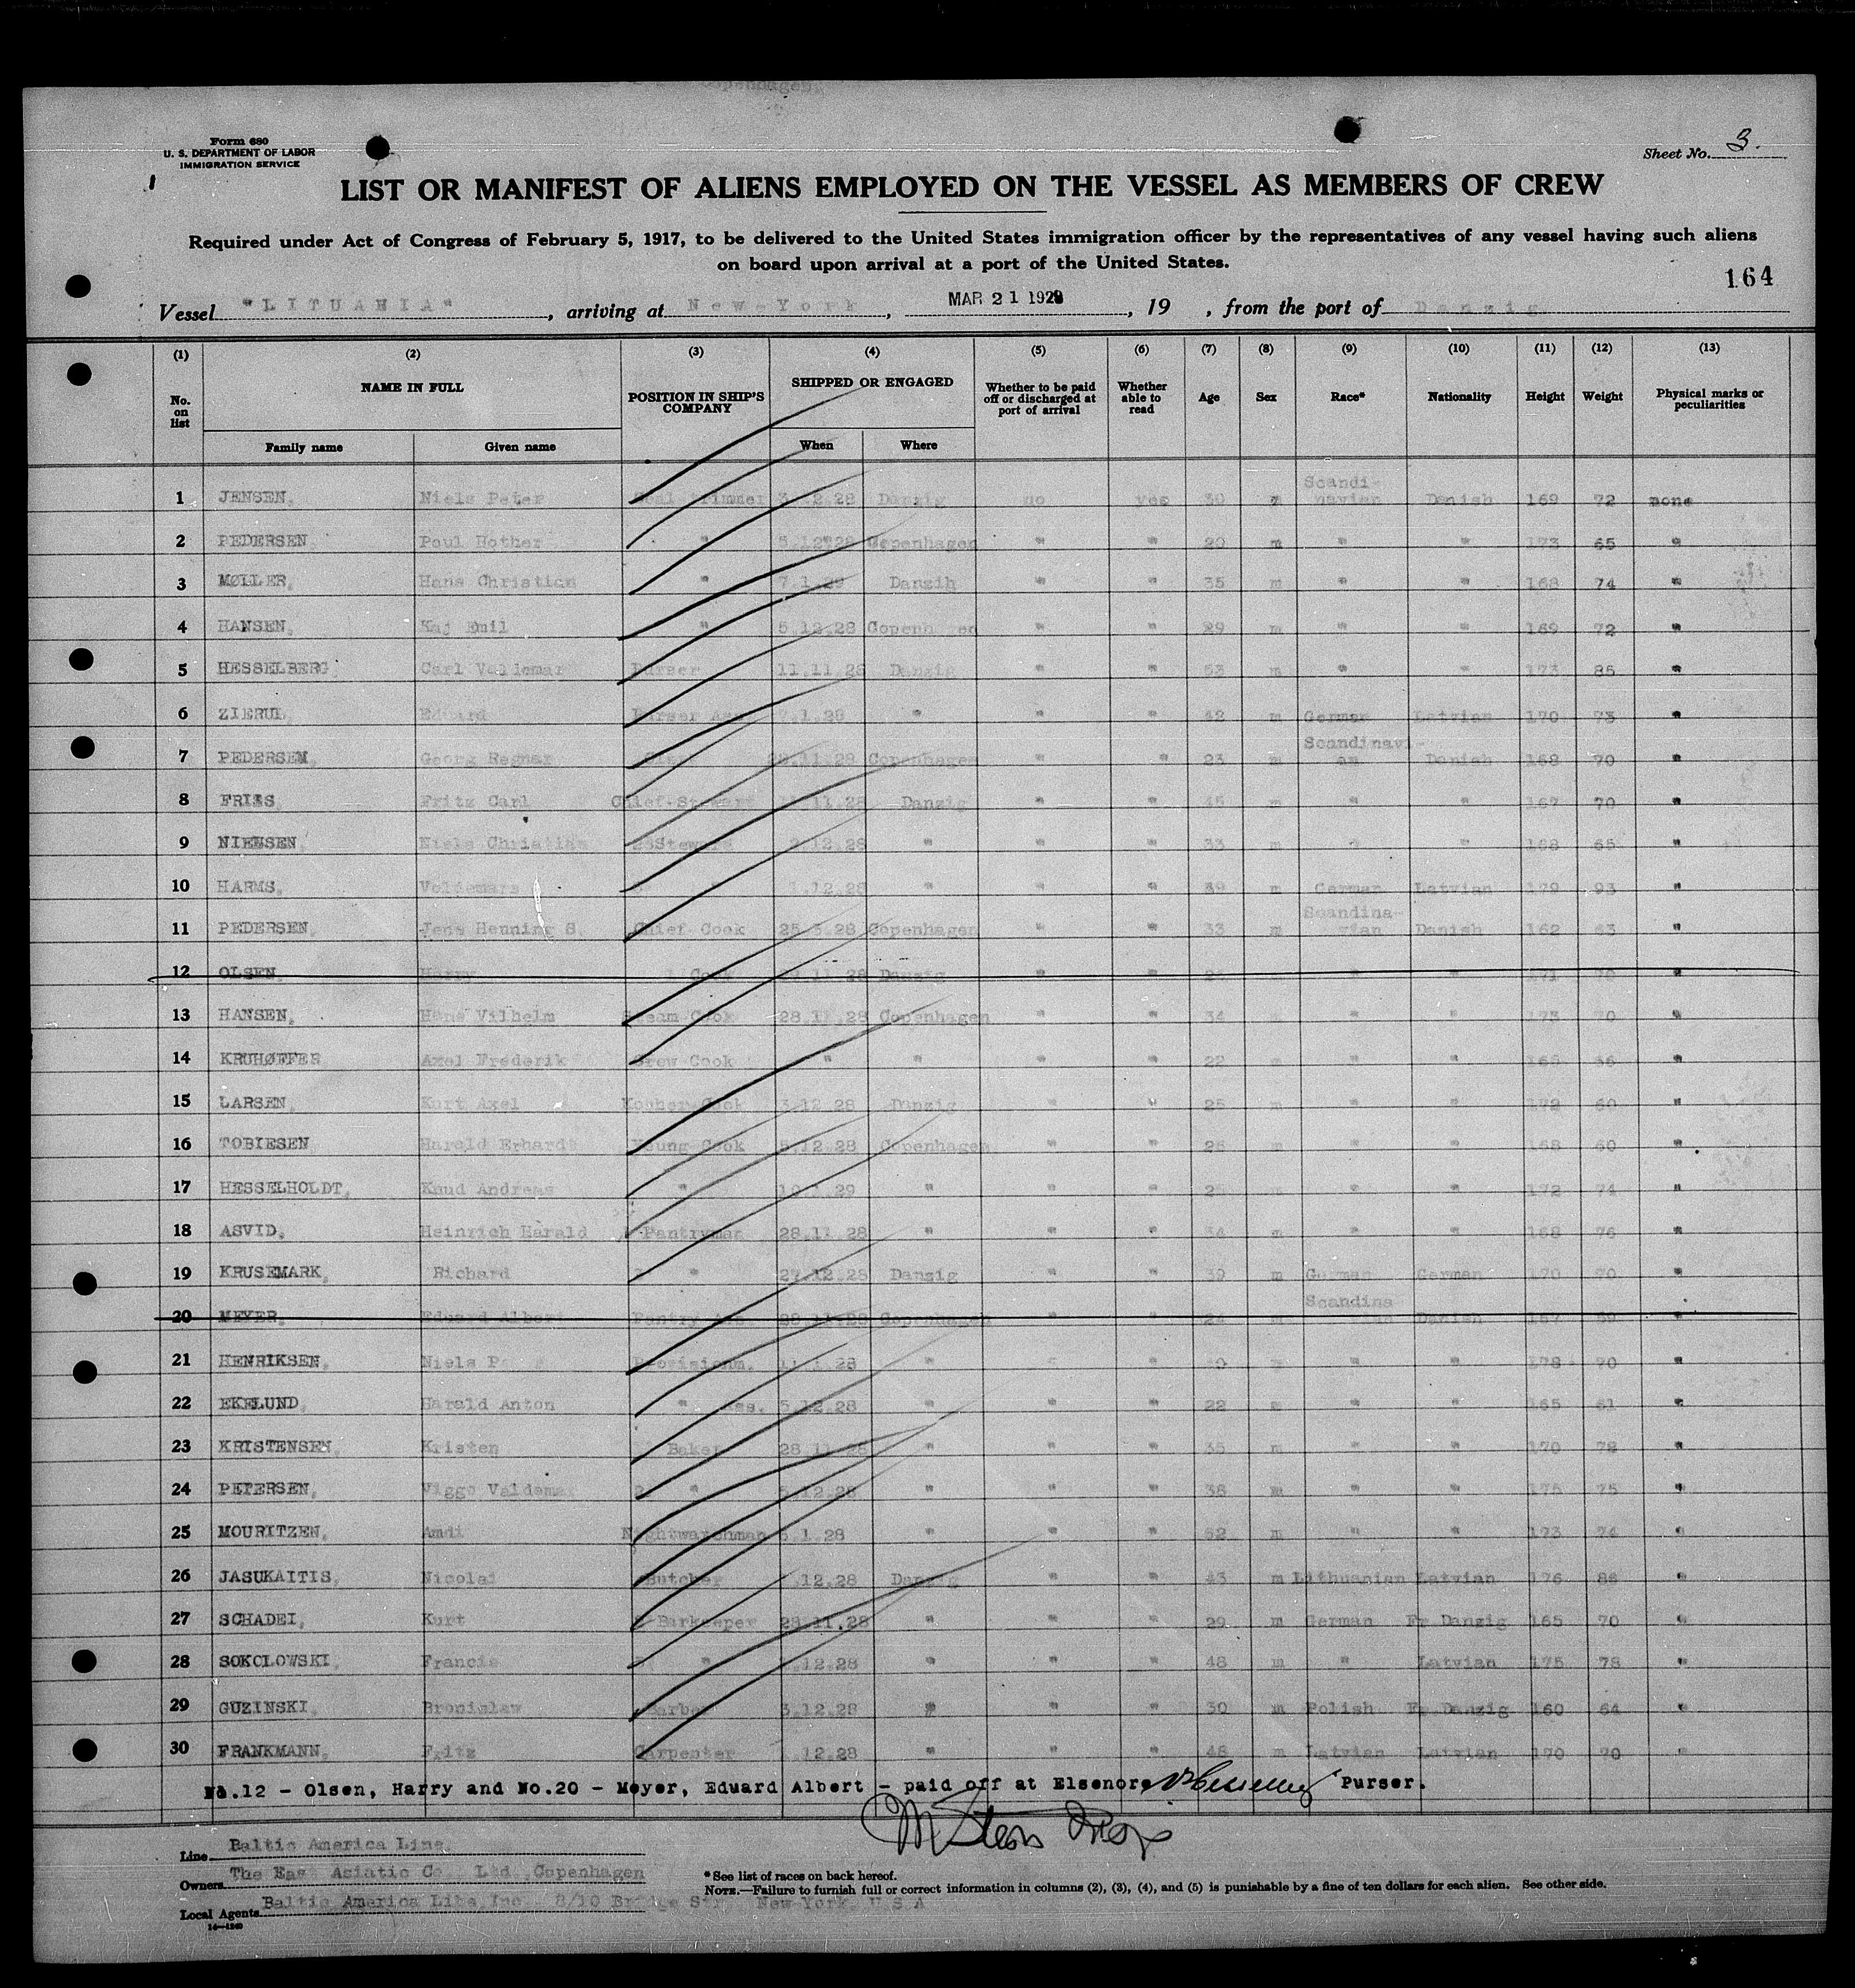 Copenhagen
Form 680
U. S. DEPARTMENT OF LABOR
IMMIGRATION SERVICE
Sheet No. 3.
LIST OR MANIFEST OF ALIENS EMPLOYED ON THE VESSEL AS MEMBERS OF CREW
Required under Act of Congress of February 5, 1917, to be delivered to the United States immigration officer by the representatives of any vessel having such aliens
on board upon arrival at a port of the United States.
164
Vessel "LITUANIA", arriving at New-York, MAR 21 1929, 19 , from the port of Danzig.
(1) (2) (3) (4) (5) (6) (7) (8) (9) (10) (11) (12) (13)
No. on list NAME IN FULL POSITION IN SHIP'S COMPANY SHIPPED OR ENGAGED Whether to be paid off or discharged at port of arrival Whether able to read Age Sex Race* Nationality Height Weight Physical marks or peculiarities
Family name Given name When Where
1 JENSEN, Niels Peter Trimmer Danzig no yes 39 m Scandi-navian Danish 169 72 none
2 PEDERSEN, Poul Hother " 5.12.28 Copenhagen " " 20 m " " 173 65 "
3 MØLLER, Hans Christian " 7.1.29 Danzih " " 35 m " " 168 74 "
4 HANSEN, Kaj Emil " 5.12.28 " " 29 m " " 169 72 "
5 HESSELBERG, Carl Valdemar Purser 11.11.28 Danzig " " 53 m " " 173 85 "
6 ZIERUL, Eduard Purser " " " 42 m German Latvian 170 73 "
7 PEDERSEN, Georg Regnar Copenhagen " " 23 m Scandinavi-an Danish 168 70 "
8 FRIIS, Fritz Carl Chief-Steward Danzig " " 45 m " " 167 70 "
9 NIELSEN, Niels Christian " " " 33 m " " 168 65 "
10 HARMS, Voldemars 1.12.28 " " " 39 m German Latvian 179 93 "
11 PEDERSEN, Jens Henning S. Chief Cook 25.5.28 Copenhagen " " 33 m Scandina-vian Danish 162 63 "
12 OLSEN, Harry Cook Danzig " " " " 171 "
13 HANSEN, Hans Vilhelm Cook 28.11.28 Copenhagen " " 34 " " 173 70 "
14 KRUHØFFER Axel Frederik Crew Cook " " " " 22 " " "
15 LARSEN, Kurt Axel Kosher Cook 3.12.28 Danzig " " 25 m " " 172 60 "
16 TOBIESEN Harald Erhardt Young Cook 5.12.28 Copenhagen " " 26 " " 168 60 "
17 HESSELHOLDT, Knud Andreas " " " " 25 m " " 172 74 "
18 ASVID, Heinrich Harald Pantryman 28.11.28 " " " 34 m " " 168 76 "
19 KRUSEMARK, Richard " 27.12.28 Danzig " " 39 m German German 170 70 "
20 MEYER, Eduard Albert Pantry 28.11.28 Copenhagen " " 24 m Scandina Danish 167 "
21 HENRIKSEN, Niels " " " " 178 70 "
22 EKELUND, Harald Anton " Ass. 5.12.28 " " " 22 m " " 165 61 "
23 KRISTENSEN, Kristen Baker 28.11.28 " " " 35 m " " 170 78 "
24 PETERSEN, Viggo Valdemar 2. " 5.12.28 " " " 38 m " " 175 75 "
25 MOURITZEN, Amdi Nightwatchman 5.1.28 " " " 52 m " " 173 74 "
26 JASUKAITIS, Nicolai Butcher .12.28 Danzig " " 43 m Lithuanian Latvian 176 86 "
27 SCHADEI, Kurt Barkeeper 28.11.28 " " " 29 m German Fr Danzig 165 70 "
28 SOKOLOWSKI, Francis " .12.28 " " " 48 m " Latvian 175 78 "
29 GUZINSKI, Bronislaw Barber 3.12.28 " " " 30 m Polish Fr Danzig 160 64 "
30 FRANKMANN, Fritz Carpenter .12.28 " " " 46 m Latvian Latvian 170 70 "
No.12 - Olsen, Harry and No.20 - Meyer, Eduard Albert - paid off at Elsenore Purser.
Line Baltic America Line.
Owners The East Asiatic Co. Ltd., Copenhagen
Local Agents Baltic America Line, Inc. 8/10 Bridge Str. New-York, U.S.A
14—1240
*See list of races on back hereof.
NOTE.—Failure to furnish full or correct information in columns (2), (3), (4), and (5) is punishable by a fine of ten dollars for each alien. See other side.